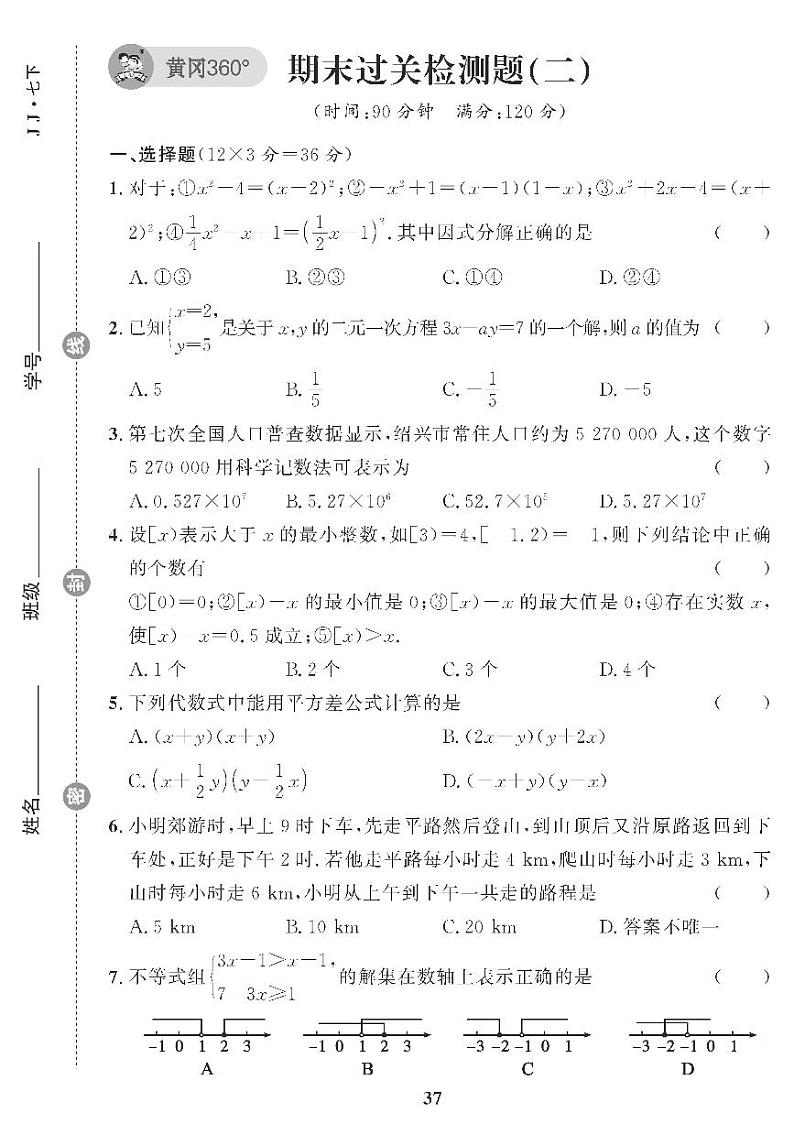 JJ·七下
学号
班级
姓名
线
封
密
黄冈360°
期末过关检测题(二)
(时间:90分钟 满分:120分)
一、选择题(12×3分=36分)
1. 对于:①x²-4=(x-2)²;②-x²+1=(x-1)(1-x);③x²+2x-4=(x+
2)²;④1/4x²-x+1=(1/2x-1)².其中因式分解正确的是 ( )
A. ①③ B. ②③ C. ①④ D. ②④
2. 已知{x=2, y=5 是关于x,y的二元一次方程3x-ay=7的一个解,则a的值为 ( )
A. 5 B. 1/5 C. -1/5 D. -5
3. 第七次全国人口普查数据显示,绍兴市常住人口约为5 270 000人,这个数字
5 270 000用科学记数法可表示为 ( )
A. 0.527×10⁷ B. 5.27×10⁶ C. 52.7×10⁵ D. 5.27×10⁷
4. 设[x)表示大于x的最小整数,如[3)=4,[ 1.2)= 1,则下列结论中正确
的个数有 ( )
①[0)=0;②[x)-x的最小值是0;③[x)-x的最大值是0;④存在实数x,
使[x) x=0.5成立;⑤[x)>x.
A. 1个 B. 2个 C. 3个 D. 4个
5. 下列代数式中能用平方差公式计算的是 ( )
A. (x+y)(x+y) B. (2x-y)(y+2x)
C. (x+1/2y)(y-1/2x) D. (-x+y)(y-x)
6. 小明郊游时,早上9时下车,先走平路然后登山,到山顶后又沿原路返回到下
车处,正好是下午2时.若他走平路每小时走4 km,爬山时每小时走3 km,下
山时每小时走6 km,小明从上午到下午一共走的路程是 ( )
A. 5 km B. 10 km C. 20 km D. 答案不唯一
7. 不等式组{3x-1>x-1, 7 3x≥1 的解集在数轴上表示正确的是 ( )
-1 0 1 2 3 -1 0 1 2 3 -3 -2 -1 0 1 -3 -2 -1 0 1
A B C D
37